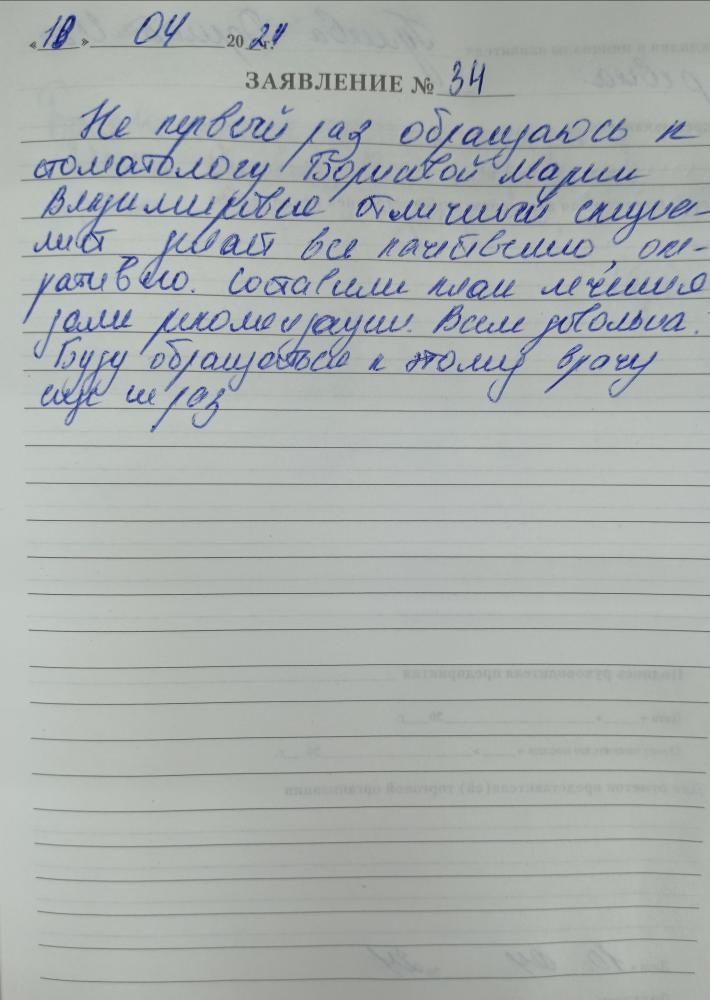 «18» 04 2024 г.
ЗАЯВЛЕНИЕ № 34
Не первый раз обращаюсь к
стоматологу Борисовой Марии
Владимировне Отличный специа-
лист делает все качественно, опе-
ративно. Составили план лечения
дали рекомендации. Всем довольна.
Буду обращаться к этому врачу
еще не раз